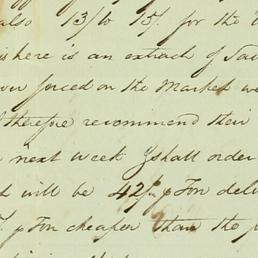 also 13/ to 15/ for the
here is an extract of
forced on the Market
therefore recommend their
next week I shall order
will be 42/ p Ton
p Ton cheaper than the